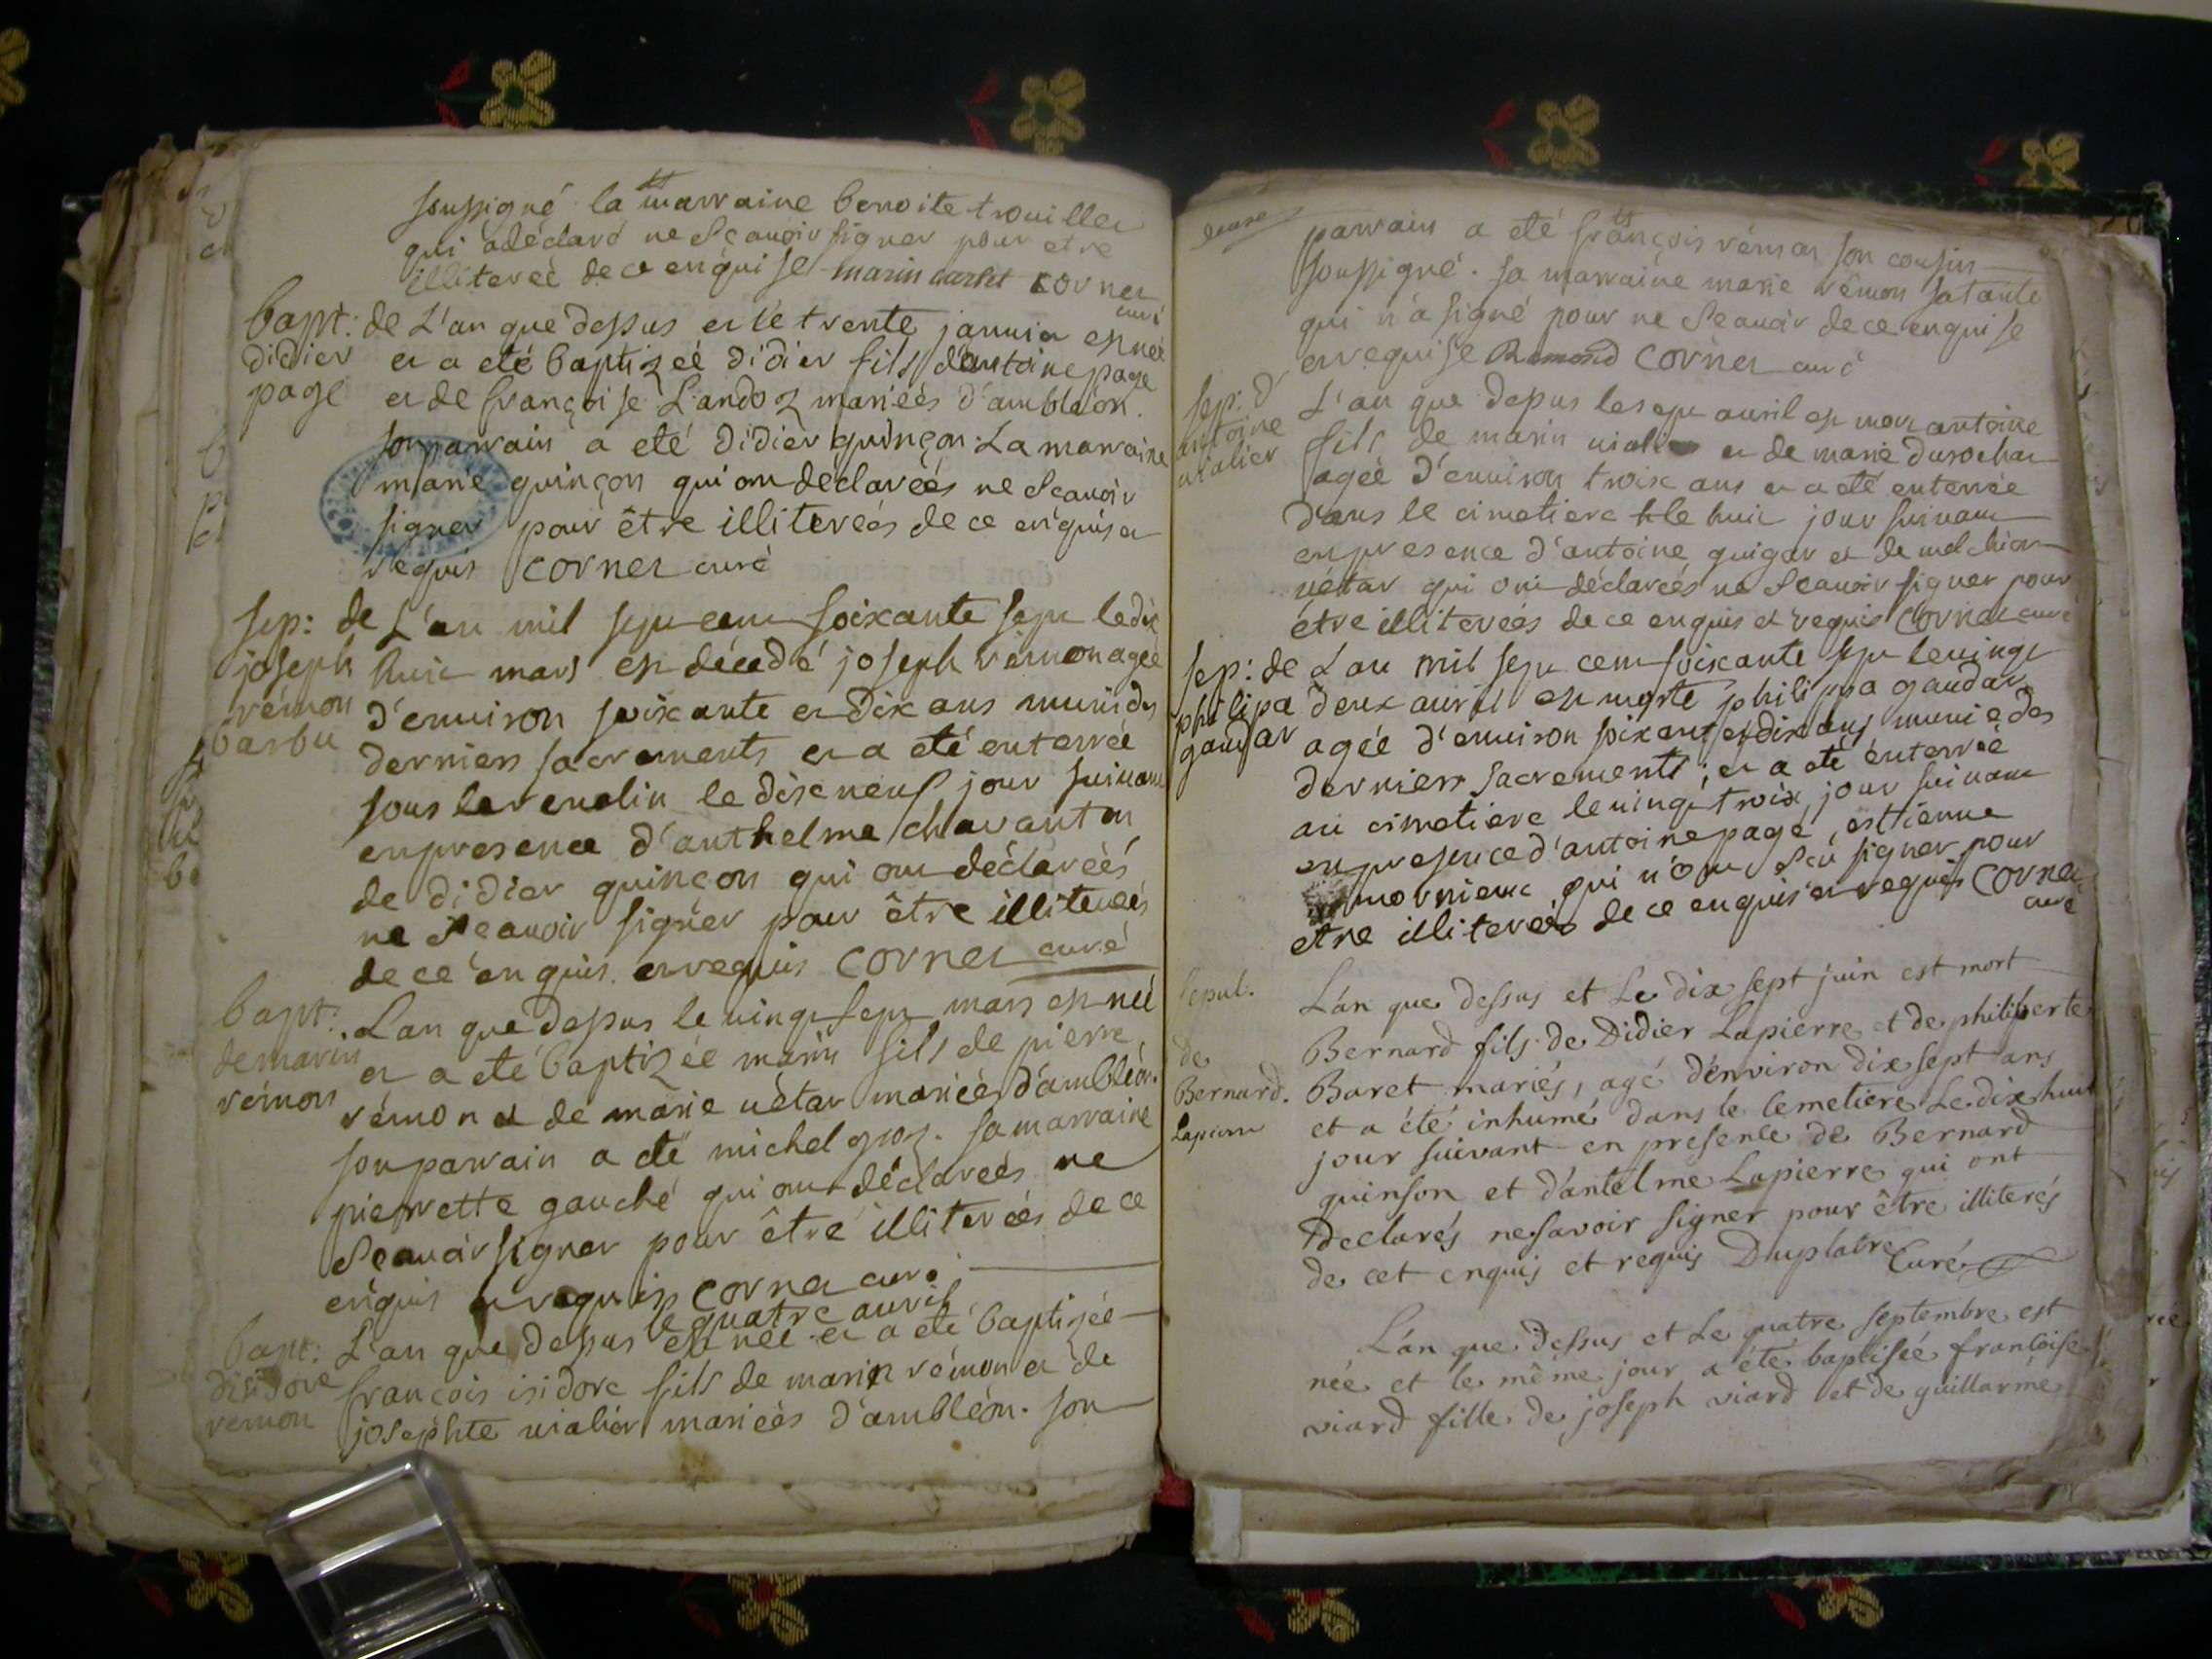 soussigné la marraine benoite trouiller
qui a déclaré ne Scauoir signer pour etre
illitereé de ce enquise marin carlet cornet
curé
bapt: de
didier
page
L'an que dessus et le trente januier est neé
et a eté baptizeé didier fils d'antoine page
et de françoise Landoz marieés d'ambleon.
son parrain a eté didier quinçon. La marraine
marie quinçon qui ont declareés ne Scauoir
signer pour être illitereés de ce enquis et
requis cornet curé
sep: de
joseph
rémon
barbu
L'an mil sept cent soixante sept le dix
huit mars est décedé joseph rémon ageé
d'enuiron soixante et dix ans muni des
derniers sacrements et a eté enterreé
sous le reuelin le dix neuf jour suiuant
en presence d'anthelme chavant et
de didier quinçon qui ont déclareés
ne Scauoir signer pour être illitereés
de ce enquis et requis cornet curé
bapt:
de marin
rémon
L'an que dessus le uingt sept mars est neé
et a eté baptizée marin fils de pierre
rémon et de marie uétar marieés d'ambleon.
son parrain a eté michel groz. sa marraine
pierrette gauché qui ont déclareés ne
Scauoir signer pour être illitereés de ce
enquis et requis cornet curé
le quatre auril
bapt:
d'isidore
remon
L'an que dessus est neé et a eté baptizeé
françois isidore fils de marin rémon et de
josephte uialier marieés d'ambléon. son
parrain a eté françois rémon son cousin
soussigné. sa marraine marie rémon sa tante
qui n'a signé pour ne Scauoir de ce enquise
et requise Remond cornet curé
sep: d'
antoine
uialier
L'an que dessus le sept auril est mort antoine
fils de marin uialier et de marie durochat
ageé d'enuiron troix ans et a eté enterreé
dans le cimetiere le huit jour suiuant
en presence d'antoine guigar et de melchior
uétar qui ont déclareés ne Scauoir signer pour
être illitereés de ce enquis et requis cornet curé
sep: de
philipa
gaudar
L'an mil sept cent soixante sept le uingt
deux auril est morte philippa gaudar
agée d'enuiron soixante et dix ans munie des
derniers sacrements; et a eté enterreé
au cimetiere le uingt troix jour suiuant
en presence d'antoine page, esttienne
mornieux qui n'ont Scu signer pour
etre illitereés de ce enquis et requis cornet
curé
sepul.
de
Bernard.
Lapierre
L'an que dessus et Le dix sept juin est mort
Bernard fils de Didier Lapierre et de philiberte
Baret mariés, agé d'environ dix sept ans
et a été inhumé dans le Cemetiere Le dix huit
jour suivant en presence de Bernard
quinson et d'antelme Lapierre qui ont
declarés ne savoir signer pour être illiterés
de cet enquis et requis Duplatre Curé
L'an que dessus et Le quatre septembre est
née et le même jour a été baptisée francoise
viard fille de joseph viard et de guillarmé